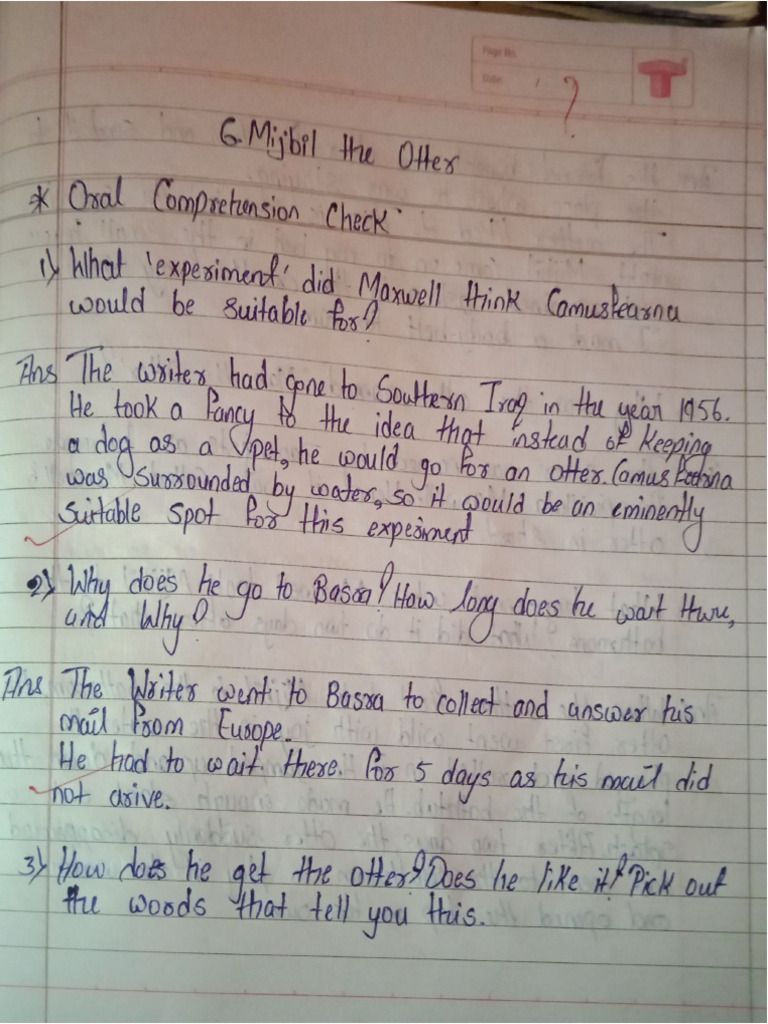 Page No.
Date:
?
6. Mijbil the Otter
* Oral Comprehension Check
1) What 'experiment' did Maxwell think Camusfearna
would be suitable for?
Ans The writer had gone to Southern Iraq in the year 1956.
He took a fancy to the idea that instead of keeping
a dog as a pet, he would go for an otter. Camusfearna
was surrounded by water, so it would be an eminently
suitable spot for this expeiment
2) Why does he go to Basra? How long does he wait there,
and Why?
Ans The Writer went to Basra to collect and answer his
mail from Europe.
He had to wait there. for 5 days as his mail did
not arive.
3) How does he get the otter? Does he like it? Pick out
the words that tell you this.